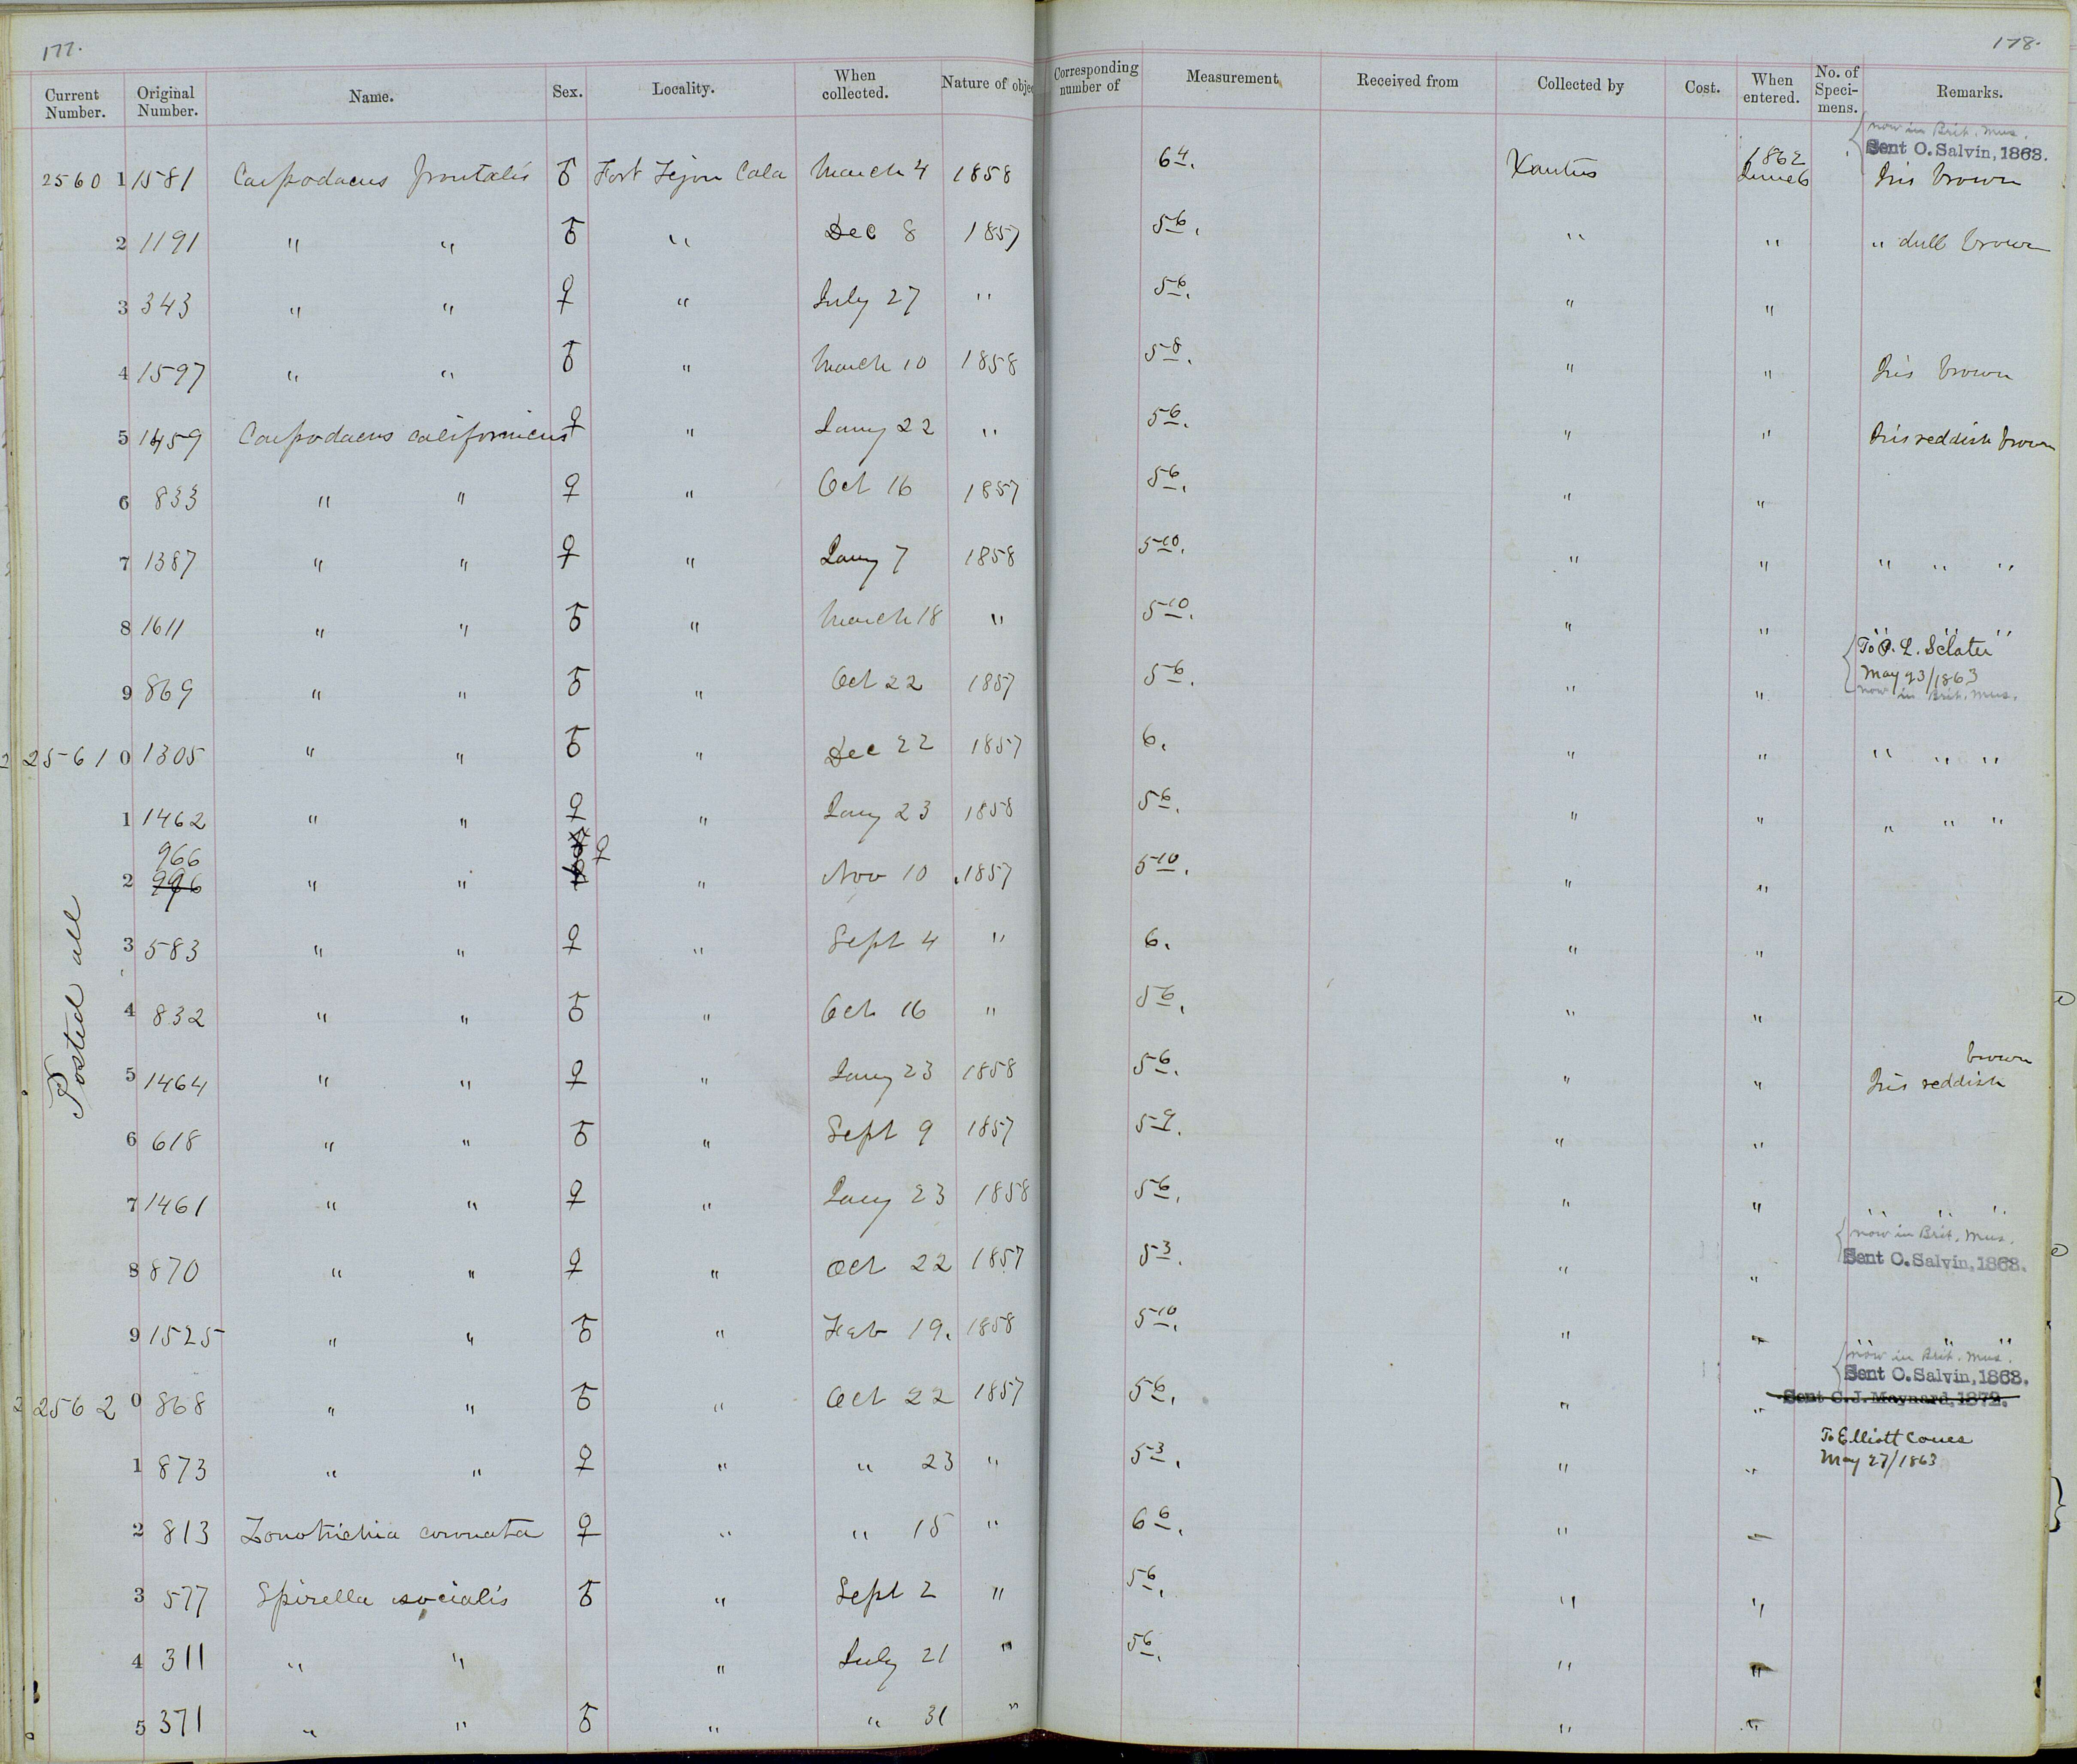 177. 178.
Current Number. Original Number. Name. Sex. Locality. When collected. Nature of objec Corresponding number of Measurement Received from Collected by Cost. When entered. No. of Speci-mens. Remarks.
now in Brit. Mus.
Sent O. Salvin, 1868.
2560 1 1581 Carpodacus frontalis ♂ Fort Tejon Cala March 4 1858 6 4. Xantus 1862 June 6 Iris brown
2 1191 " " ♂ " Dec 8 1857 5 6. " " " dull brown
3 343 " " ♀ " July 27 " 5 6. " "
4 1597 " " ♂ " March 10 1858 5 8. " " Iris brown
5 1459 Carpodacus californicus ♀ " Jany 22 " 5 6. " " Iris reddish brown
6 833 " " ♀ " Oct 16 1857 5 6. " "
7 1387 " " ♀ " Jany 7 1858 5 10. " " " " "
8 1611 " " ♂ " March 18 " 5 10. " " " " "
To P. L. Sclater
May 23/1863
now in Brit. Mus.
9 869 " " ♂ " Oct 22 1857 5 6. " "
2561 0 1305 " " ♂ " Dec 22 1857 6. " " " " "
1 1462 " " ♀ " Jany 23 1858 5 6. " " " " "
966
2 996 " " ♀ " Nov 10 1857 5 10. " "
3 583 " " ♀ " Sept 4 " 6. " "
4 832 " " ♂ " Oct 16 " 5 6. " "
brown
5 1464 " " ♀ " Jany 23 1858 5 6. " " Iris reddish
6 618 " " ♂ " Sept 9 1857 5 9. " "
7 1461 " " ♀ " Jany 23 1858 5 6. " " " " "
now in Brit. Mus.
Sent O. Salvin, 1868.
8 870 " " ♀ " Oct 22 1857 5 3. " "
9 1525 " " ♂ " Feb 19. 1858 5 10. " " " " "
now in Brit. Mus.
Sent O. Salvin, 1868.
2562 0 868 " " ♂ " Oct 22 1857 5 6. " " Sent C. J. Maynard, 1872.
To Elliott Coues
May 27/1863
1 873 " " ♀ " " 23 " 5 3. " "
2 813 Zonotrichia coronata ♀ " " 15 " 6 6. " "
3 577 Spizella socialis ♂ " Sept 2 " 5 6. " "
4 311 " " " July 21 " 5 6. " "
5 371 " " ♂ " " 31 " " "
Posted all